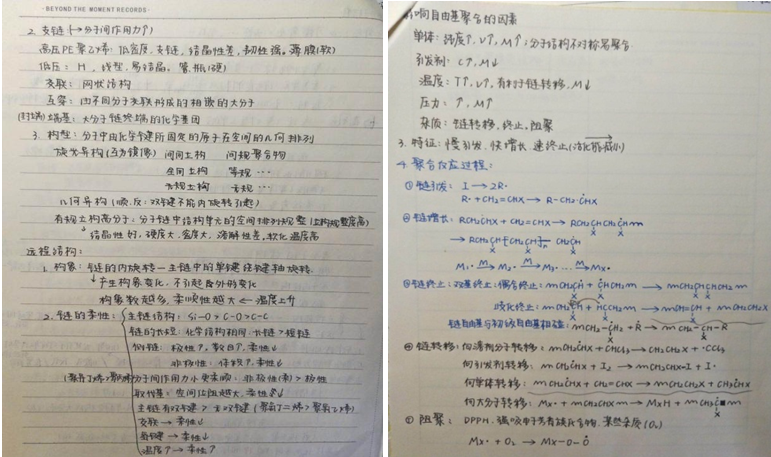 BEYOND THE MOMENT RECORDS
2. 支链 (→分子间作用力↑)
高压PE 聚乙烯: 低密度, 支链, 结晶性差, 韧性强。薄膜(软)
低压: H, 线型, 易结晶, 瓶(硬)
交联: 网状结构
互穿: 由不同分子交联形成的相嵌的大分子
端基: 大分子链终端的化学基团
3. 构型: 分子中由化学键所固定的原子在空间的几何排列
旋光异构(互为镜像) 间同立构 间规聚合物
全同立构 等规 ···
无规立构 无规 ···
几何异构(顺, 反: 双键不能内旋转引起)
有规立构高分子: 分子链中结构单元的空间排列规整(立构规整度高)
结晶性好, 硬度大, 密度大, 溶解性差, 软化温度高
远程结构:
1. 构象: 链的内旋转—主链中的单键绕键轴旋转.
产生构象变化, 不引起
构象数越多, 柔顺性越大 ← 温度上升
2. 链的柔性: 主链结构: Si-O > C-O > C-C
链的长短: 化学结构相同, 长链>短链
侧链: 极性↑, 数目↑, 柔性↓
非极性: 体积↑, 柔性↓
分子间作用力小更柔顺, 非极性(柔) > 极性
取代基: 空间位阻越大, 柔性差↓
主链有双键 > 无双键 (聚丁二烯 > 聚乙烯)
交联 → 柔性↓
氢键 → 柔性↓
温度↑ → 柔性↑
影响自由基聚合的因素
单体: 纯度↑, V↑, M↑; 分子结构不对称易聚合
引发剂: C↑, M↓
温度: T↑, V↑, 有利于链转移, M↓
压力: ↑, M↑
杂质: 链转移, 终止, 阻聚
3. 特征: 慢引发, 快增长, 速终止(活化能减小)
4. 聚合反应过程:
①链引发: I → 2R·
R· + CH₂=CHX → R-CH₂-ĊHX
②链增长: RCH₂ĊHX + CH₂=CHX → RCH₂CHCH₂ĊH
X X
→ RCH₂CH[CH₂CH]ₙ CH₂ĊH
X X X
M₁· →M M₂· →M M₃· ... →M Mx·
③链终止: 双基终止: 偶合终止: mCH₂ĊH + ĊHCH₂m → mCH₂CHCHCH₂m
X X X X
歧化终止: mCH₂ĊH + ĊHCH₂m → mCH=CH + mCH₂CH₂X
X X X
链自由基与初级自由基相碰: mCH₂-ĊH₂ + Ṙ → mCH₂-CH-R
X X
④链转移: 向溶剂分子转移: mCH₂ĊHX + CHCl₃ → CH₂CH₂X + ·CCl₃
向引发剂转移: mCH₂ĊHX + I₂ → mCH₂CHX-I + I·
向单体转移: mCH₂ĊHX + CH₂=CHX → mCH₂CH₂X + CH₃ĊHX
向大分子转移: Mx· + mCH₂CHXm → MxH + mCH₂Ċm
X
⑤阻聚: DPPH, 强吸电子芳香族化合物, 某些杂质(O₂)
Mx· + O₂ → Mx-O-Ȯ